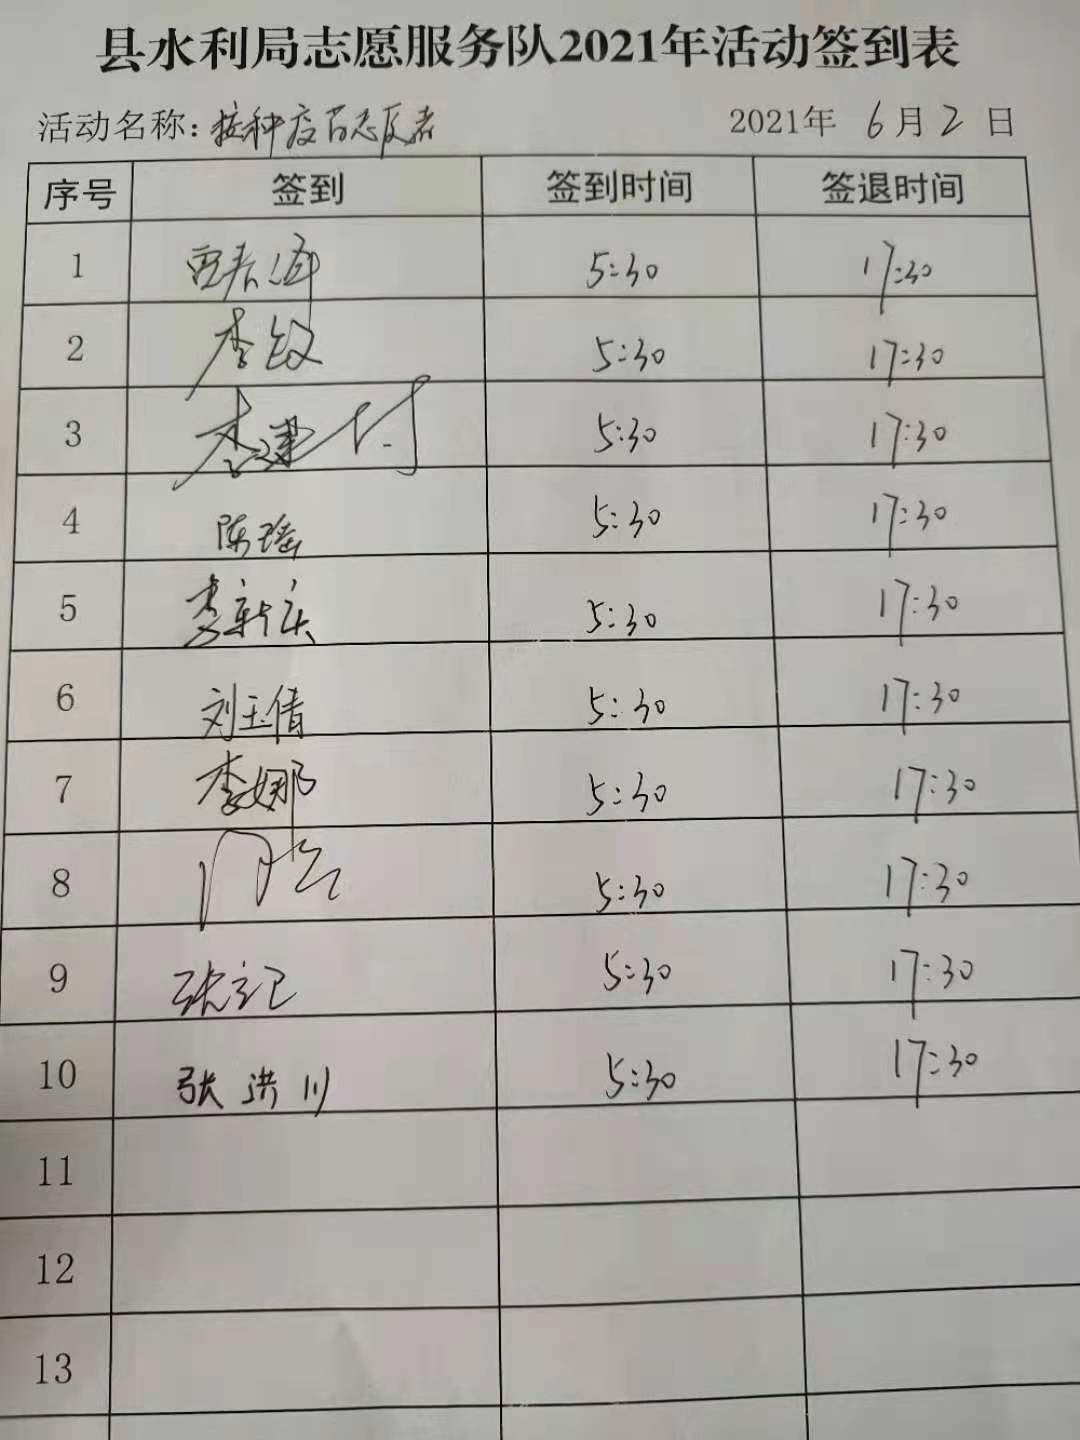 县水利局志愿服务队2021年活动签到表
活动名称:接种疫苗志愿者 2021年 6月2日
序号 签到 签到时间 签退时间
1 5:30 17:30
2 李敏 5:30 17:30
3 李建付 5:30 17:30
4 陈瑶 5:30 17:30
5 李新庆 5:30 17:30
6 刘玉倩 5:30 17:30
7 李娜 5:30 17:30
8 5:30 17:30
9 张记 5:30 17:30
10 张洪川 5:30 17:30
11
12
13